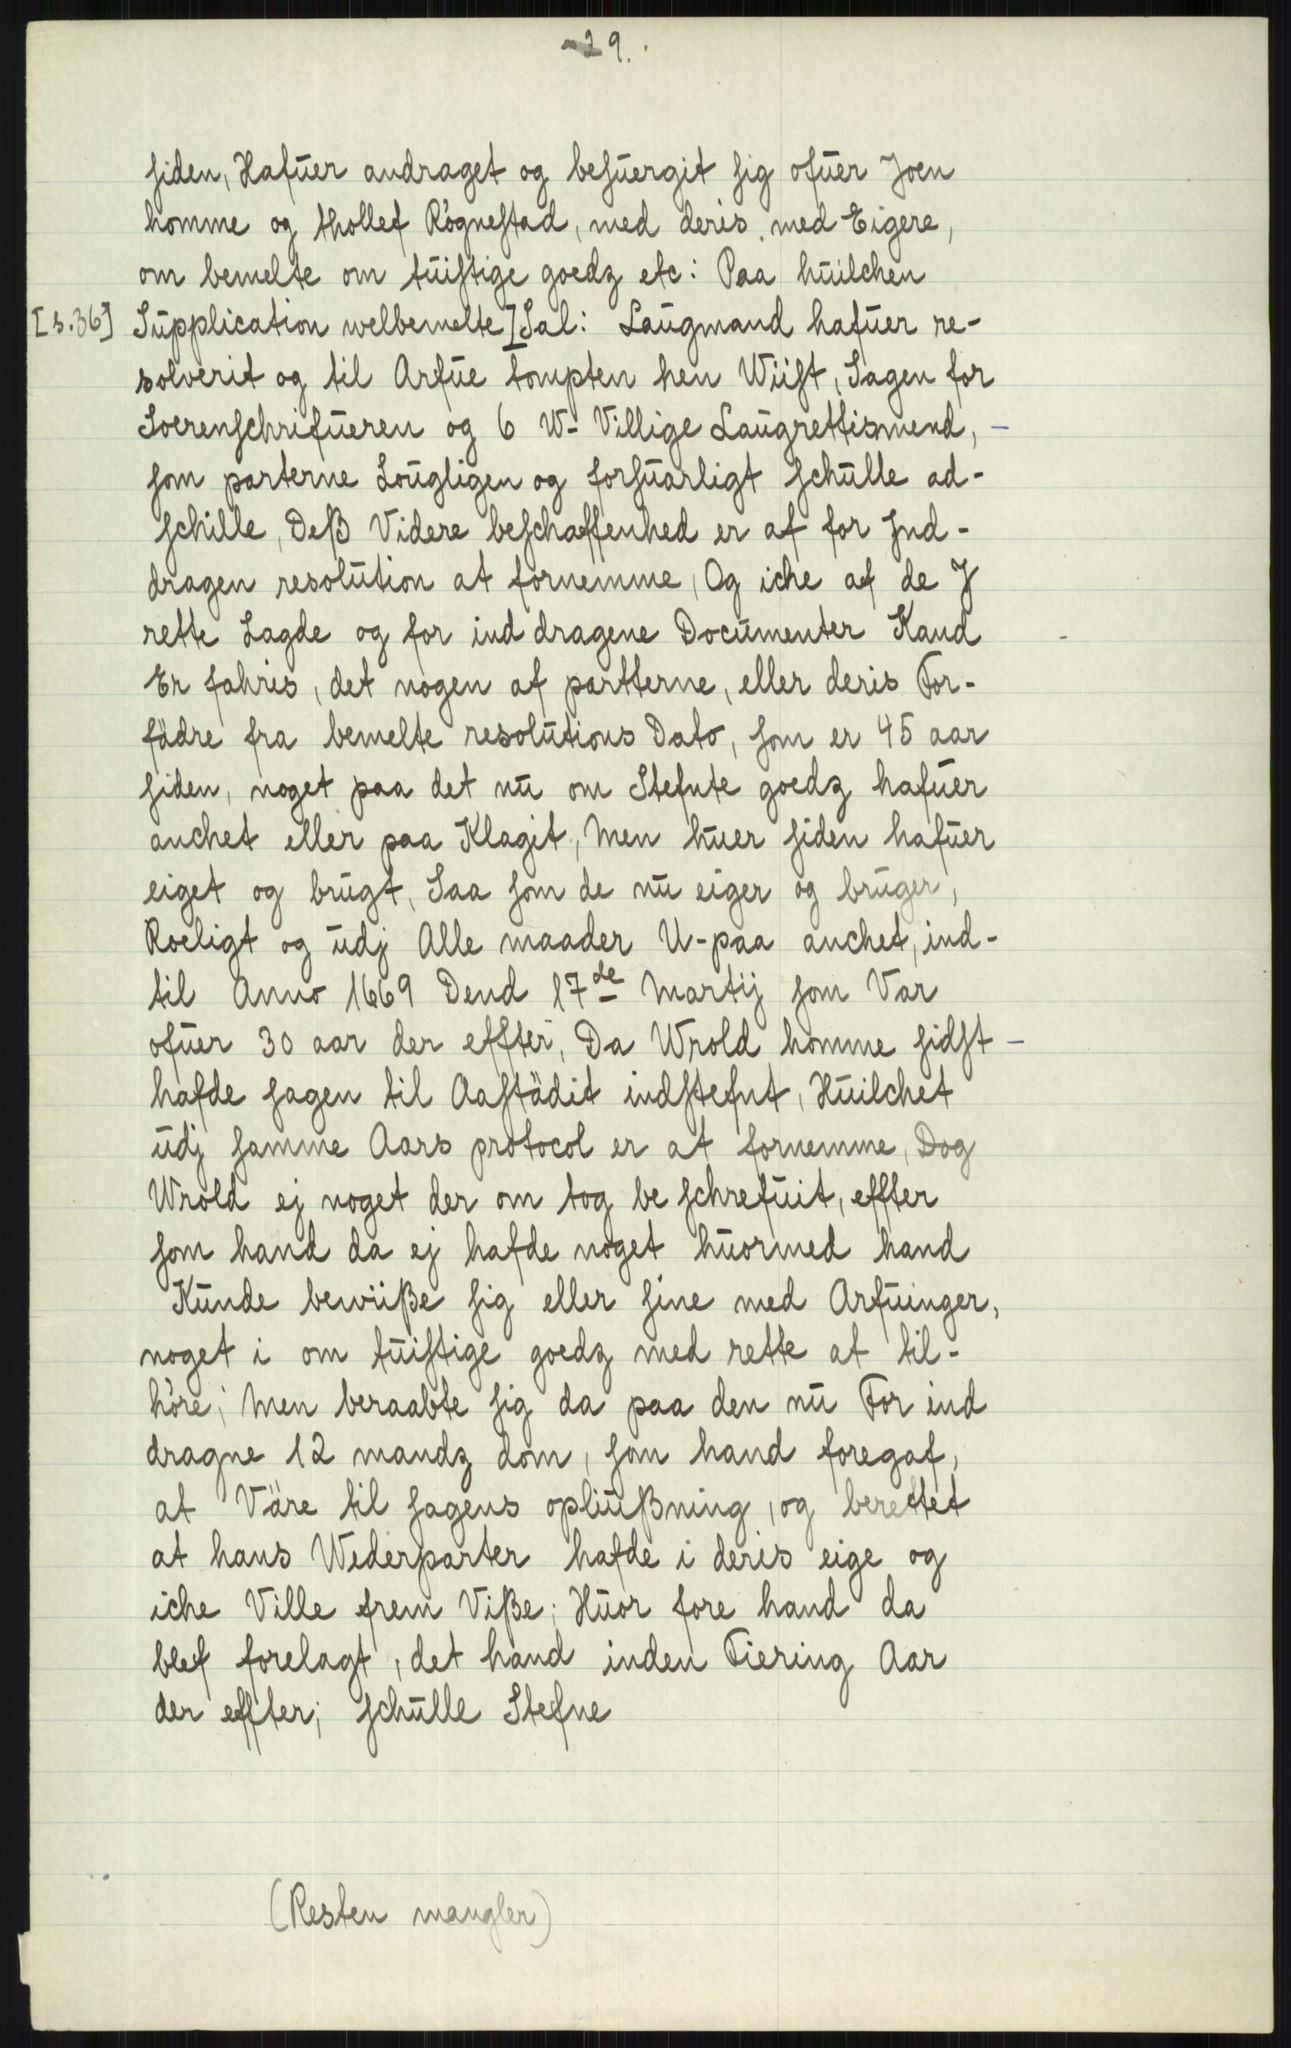 29.
siden, Hafuer andraget og besuergit sig ofuer Joen
homme og thollef Rögnestad, med deris med Eigere,
om bemelte om tuistige goedz etc: Paa huilchen
[s.36] Supplication welbemelte] Sal: Laugmand hafuer re-
solverit og til Arfue tompten hen Wiist, Sagen for
Soerenschrifueren og 6 W- Villige Laugrettismend, -
som parterne Lougligen og forsuarligt schulle ad-
schille, Deß Videre beschaffenhed er af for Ind-
dragen resolution at fornemme, Og iche af de J
rette Lagde og for ind dragene Documenter Kand
Er fahris, det nogen af partterne, eller deris For-
fädre fra bemelte resolutions Dato, som er 45 aar
siden, noget paa det nu om Stefnte goedz hafuer
anchet eller paa Klagit, Men huer siden hafuer
eiget og brugt, Saa som de nu eiger og bruger,
Roeligt og udj Alle maader U-paa anchet, ind-
til Anno 1669 Dend 17de Martij som Var
ofuer 30 aar der effter, Da Wrold homme sidst -
hafde sagen til Aastädit indstefnt, Huilchet
udj samme Aars protocol er at fornemme, Dog
Wrold ej noget der om tog be schrefuit, effter
som hand da ej hafde noget huormed hand
Kunde bewiiße sig eller sine med Arfuinger,
noget i om tuistige goedz med rette at til-
höre; Men beraabte sig da paa den nu For ind
dragne 12 mandz dom, som hand foregaf,
at Väre til sagens opliußning, og berettet
at hans Wederparter hafde i deris eige og
iche Ville frem Viße; Huor fore hand da
blef forelagt, det hand inden Fiering Aar
der effter; schulle Stefne
(Resten mangler)